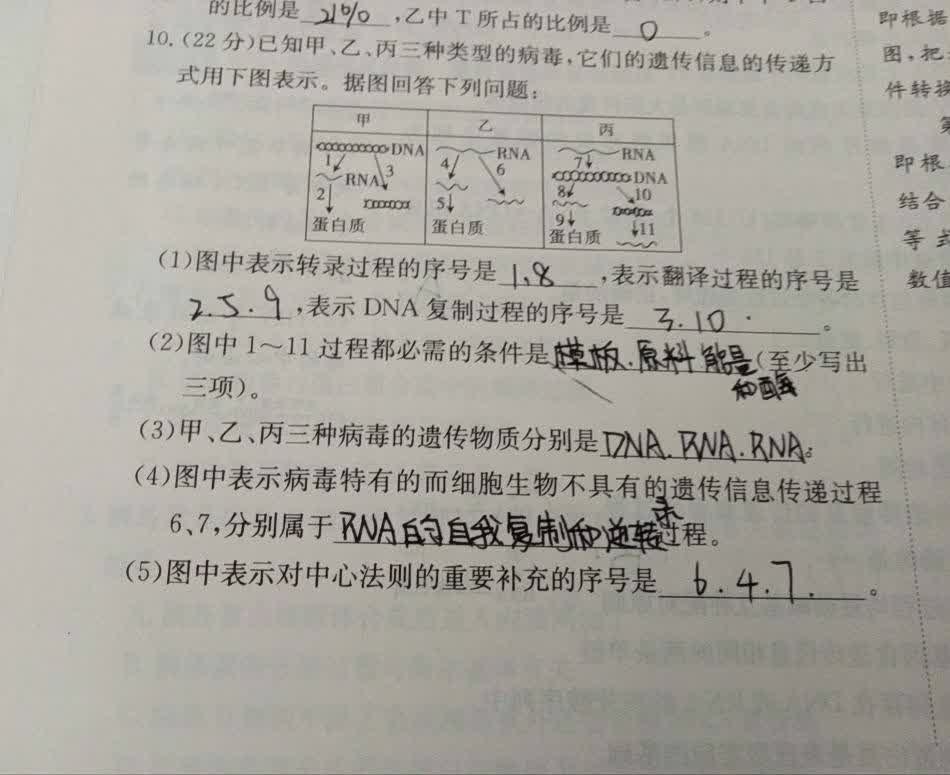 的比例是 21% ,乙中T所占的比例是 0 。
10.(22分)已知甲、乙、丙三种类型的病毒,它们的遗传信息的传递方
式用下图表示。据图回答下列问题:
甲 乙 丙
DNA RNA RNA
1 3 4 6 7
RNA DNA
2 5 8 10
9 11
蛋白质 蛋白质 蛋白质
(1)图中表示转录过程的序号是 1,8 ,表示翻译过程的序号是
2.5.9 ,表示DNA复制过程的序号是 3.10 。
(2)图中1~11过程都必需的条件是模板.原料能量(至少写出
和酶
三项)。
(3)甲、乙、丙三种病毒的遗传物质分别是DNA.RNA.RNA。
(4)图中表示病毒特有的而细胞生物不具有的遗传信息传递过程
6、7,分别属于RNA的自我复制和逆转录过程。
(5)图中表示对中心法则的重要补充的序号是 6.4.7. 。
即根据
图,把
件转换
即根
结合
等式
数值